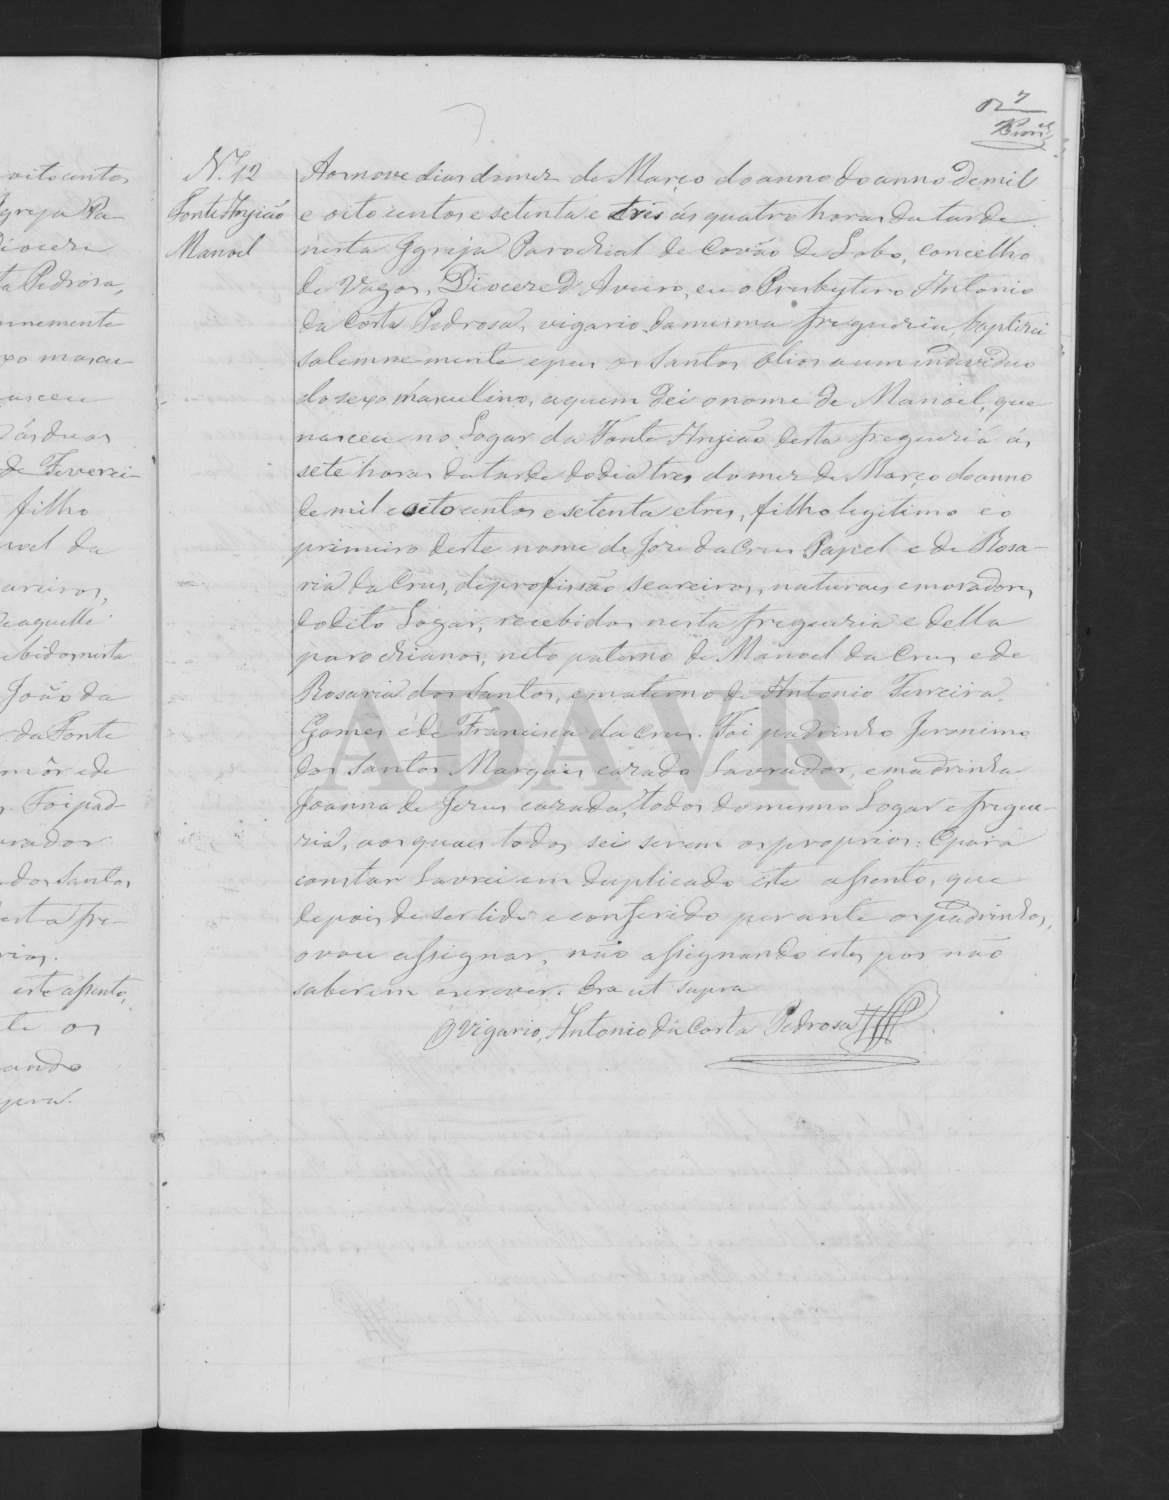 7
N.º 12
Fonte Anjião
Manoel
Aos nove dias do mez de Março do anno do anno de mil
e oito centos e setenta e tres ás quatro horas da tarde
nesta Igreja Parochial de Covão de Lobo, concelho
de Vagos, Diocese d'Aveiro, eu o Presbytero Antonio
da Costa Pedrosa, vigario da mesma freguezia, baptizei
solemnemente e puz os Santos Olios a um individuo
do sexo masculino, a quem dei o nome de Manoel, que
nasceu no Logar da Fonte Anjião desta freguezia ás
sete horas da tarde do dia tres do mez de Março do anno
de mil e oito centos e setenta e tres, filho legitimo e o
primeiro deste nome de José da Crus Papel e de Rosa-
ria da Crus, de profissão seareiros, naturais e moradores
do dito Logar, recebidos nesta freguezia e della
parochianos, neto paterno de Manoel da Crus e de
Rosaria dos Santos, e materno de Antonio Ferreira
Gomes e de Francisca da Crus. Foi padrinho Jeronimo
dos Santos Marques cazado Lavrador, e madrinha
Joanna de Jezus cazada, todos do mesmo Logar e fregue-
zia, aos quaes todos sei serem os proprios. E para
constar lavrei em duplicado este assento, que
depois de ser lido e conferido perante os padrinhos,
o vou assignar, não assignando estes por não
saberem escrever. Era ut supra
O Vigario, Antonio da Costa Pedrosa
ADAVR
oito centos
Igreja Pa-
Diocese
ta Pedrosa,
mnemente
xo mascu-
asceu
ás duas
de Feverei-
filho
oel da
areiros,
daquelle
cebidos nesta
João da
da Fonte
mór e de
Foi pad-
vrador
dos Santos
esta fre-
rios.
este assento,
te os
ando
upra.